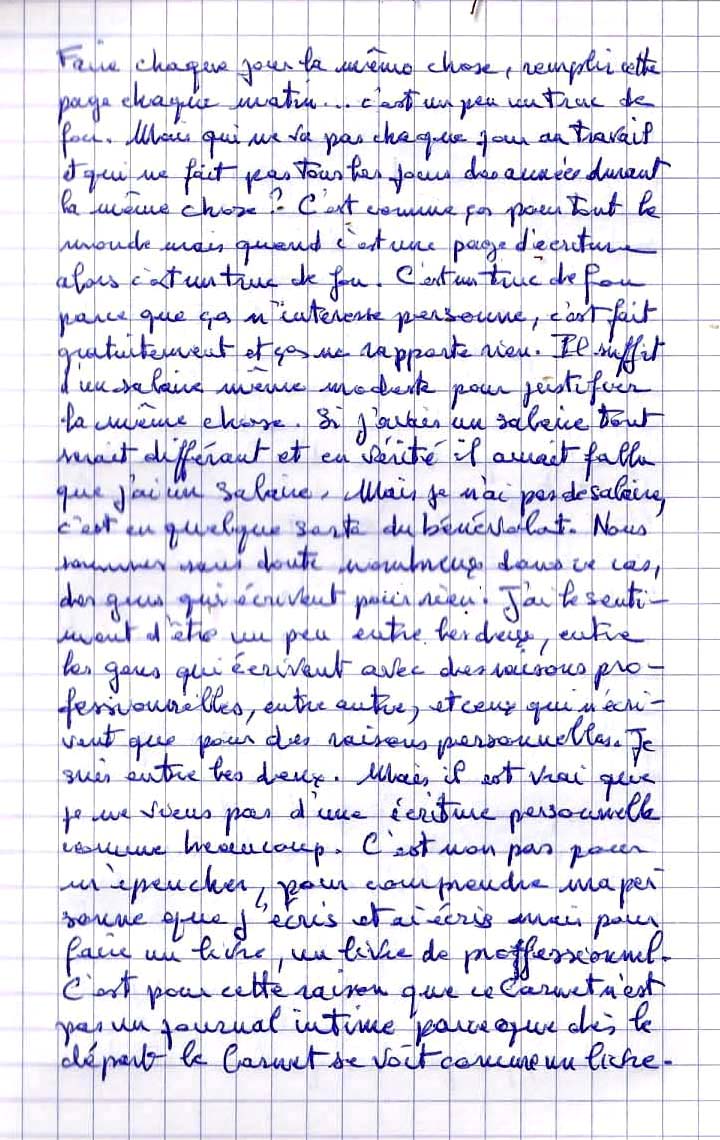 Faire chaque jour la même chose, remplir cette
page chaque matin... c'est un peu un truc de
fou. Mais qui ne va pas chaque jour au travail
et qui ne fait pas tous les jours des années durant
la même chose ? C'est comme ça pour tout le
monde mais quand c'est une page d'écriture
alors c'est un truc de fou. C'est un truc de fou
parce que ça n'intéresse personne, c'est fait
gratuitement et ça ne rapporte rien. Il suffit
d'un salaire même modeste pour justifier
la même chose. Si j'avais un salaire tout
serait différant et en vérité il aurait fallu
que j'ai un salaire. Mais je n'ai pas de salaire,
c'est en quelque sorte du bénévolat. Nous
sommes sans doute nombreux dans ce cas,
des gens qui écrivent pour rien. J'ai le senti-
ment d'être un peu entre les deux, entre
les gens qui écrivent avec des raisons pro-
fessionnelles, entre autre, et ceux qui n'écri-
vent que pour des raisons personnelles. Je
suis entre les deux. Mais il est vrai que
je ne viens pas d'une écriture personnelle
comme beaucoup. C'est non pas pour
m'épencher, pour comprendre ma per
sonne que j'écris et ai écris mais pour
faire un livre, un livre de proffessionnel.
C'est pour cette raison que ce Carnet n'est
pas un journal intime parce que dès le
départ le Carnet se voit comme un livre.